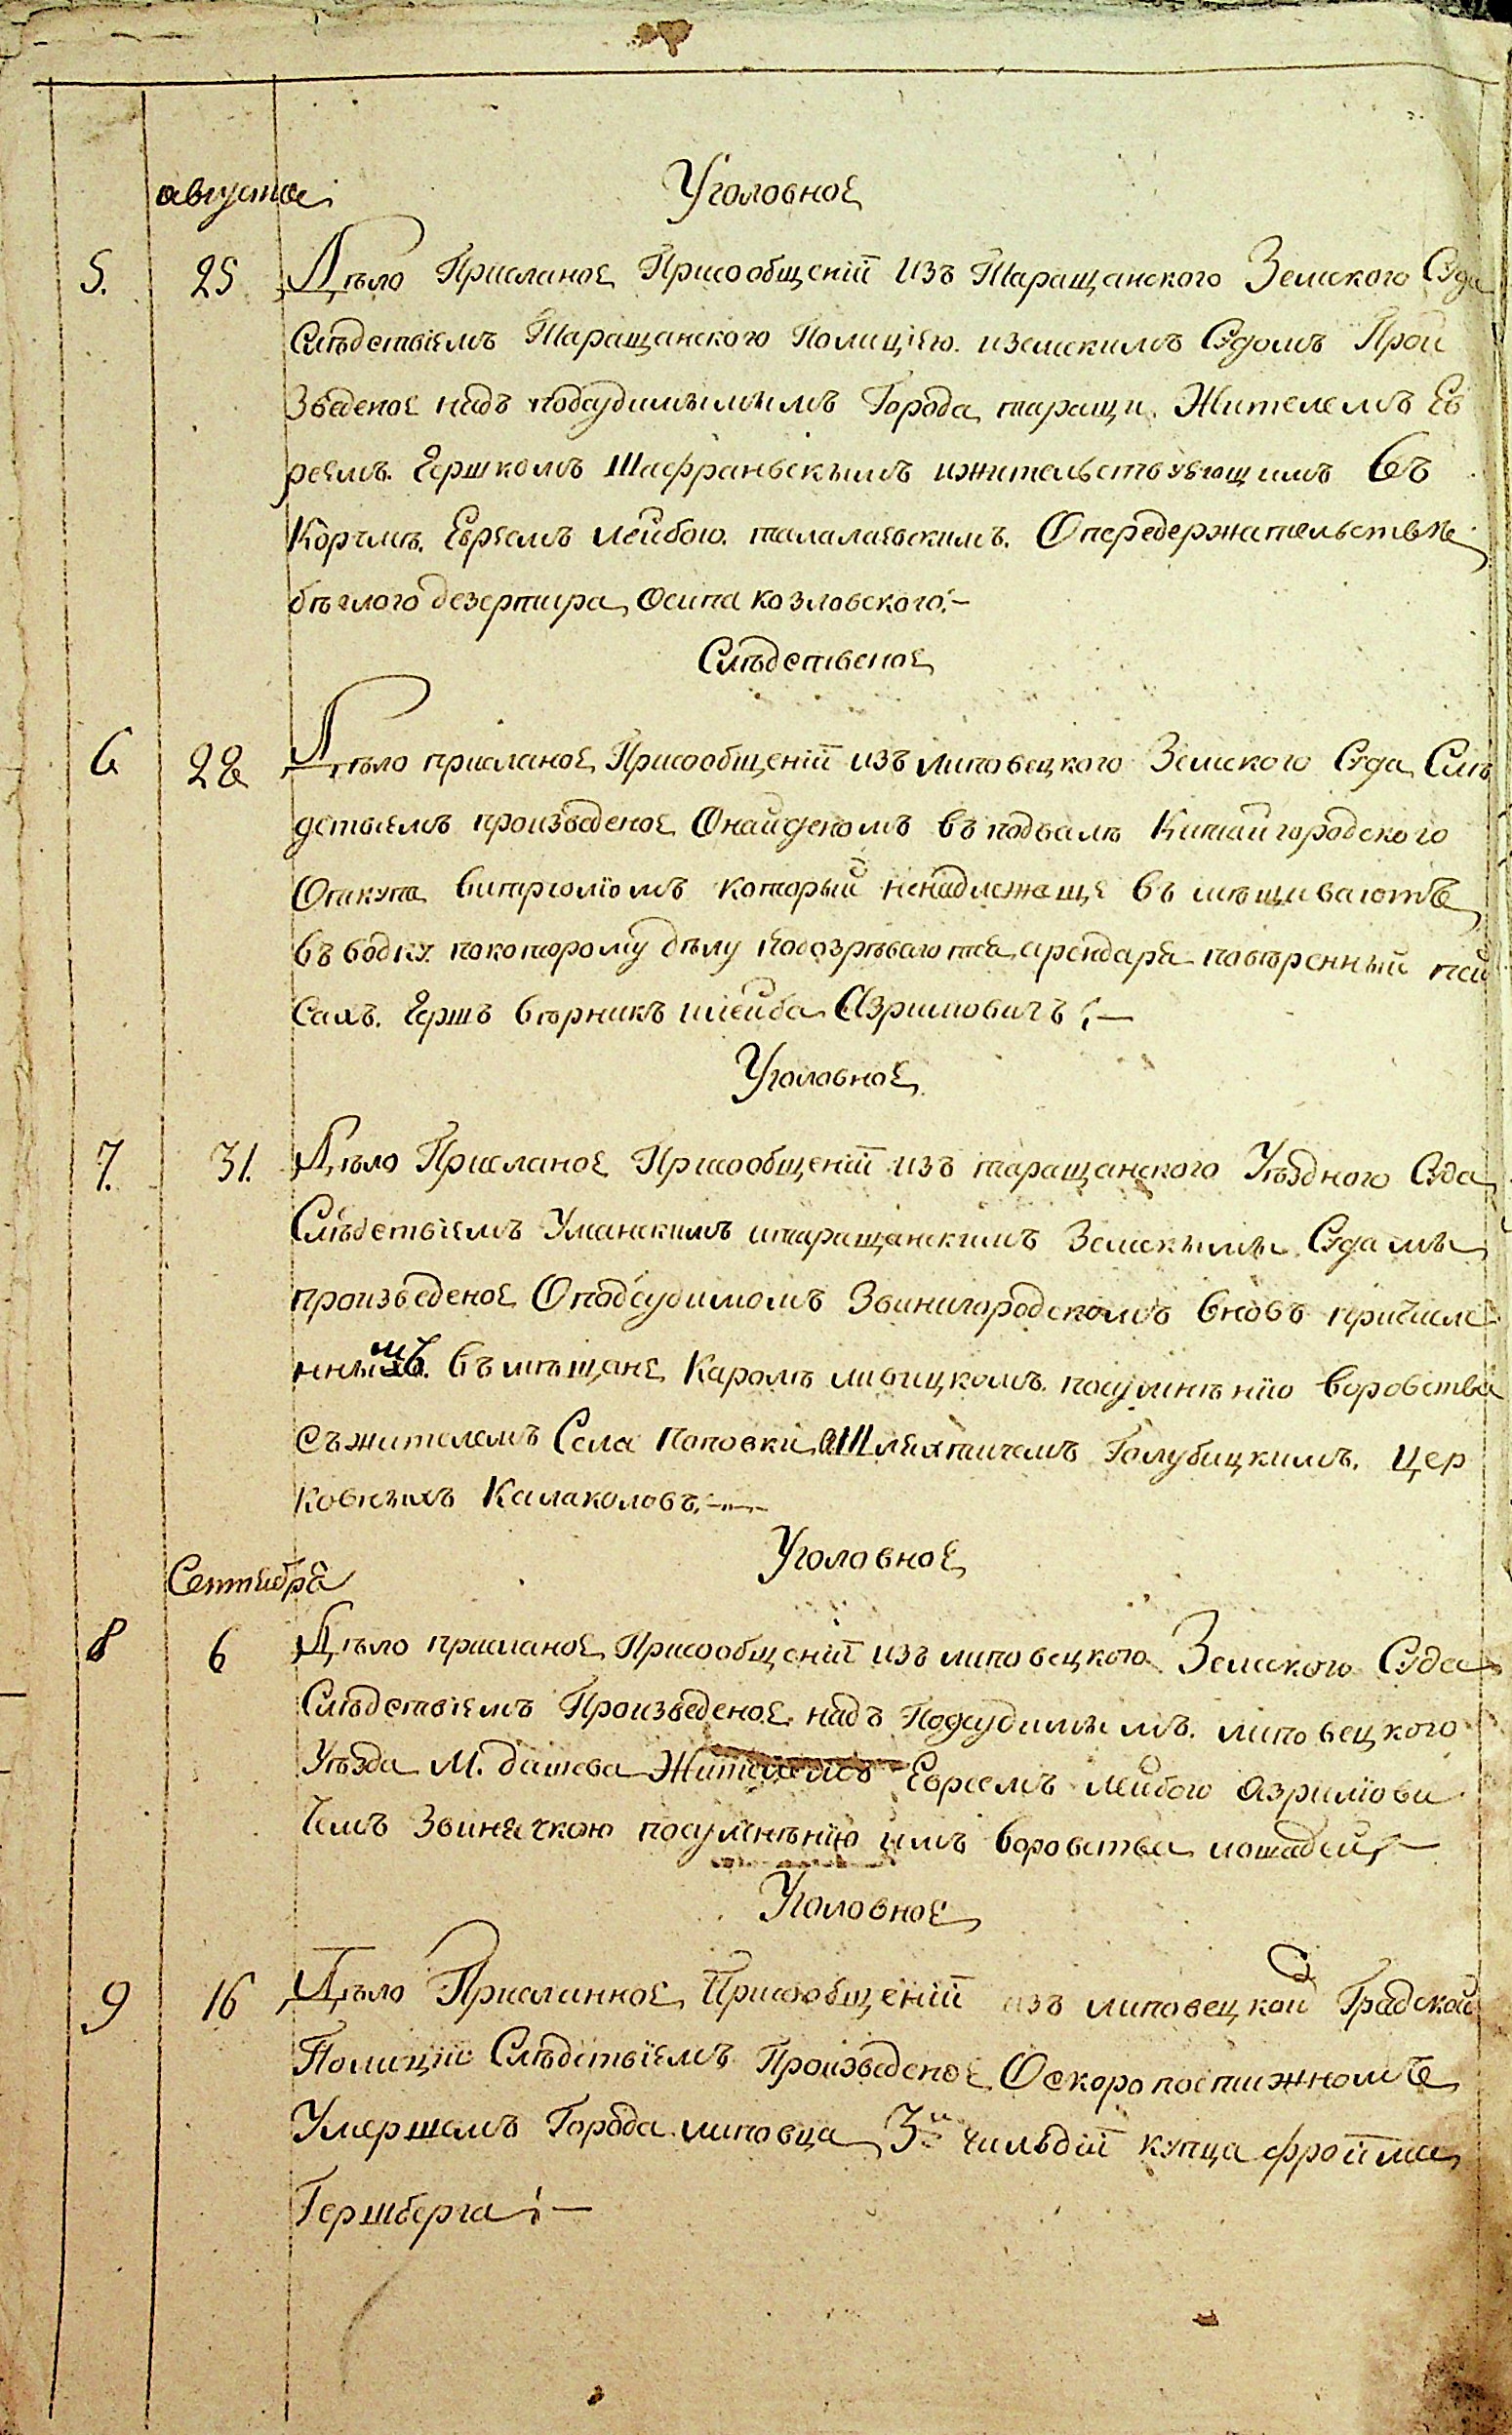 августа Уголовное
5. 25 Дѣло Присланое Присообщеніи Изъ Таращанского Земского Суда
Слѣдствіемъ Таращанского Полиціею. иземскимъ Судомъ Прои
Зведеное надъ подсудимымымъ Города таращи. Жителемъ Ев
реемъ. Гершкомъ Шафраньскымъ ижительствующимъ Въ
Корчмѣ. Евреемъ Лейбою. талалаевскимъ. Опередержательстве
бѣглого дезертира Осипа козловского:-
Слѣдственое
6 28 Дѣло присланое Присообщеніи изъ липовецкого Земского Суда Слѣ
дствіемъ произведеное Онайденомъ въ подвалѣ Китайгородского
Откупа витріоліомъ который ненадлежаще въ мѣщиваютъ
въ водку покоторому дѣлу Подозрѣваются арендаря повѣренный пей
Сахъ. Гершъ вѣрникъ шлейба Азримовичъ:—
Уголовное
7. 31. Дѣло Присланое Присообщеніи изъ таращанского Уѣздного Суда
Слѣдствіемъ Уманскимъ итаращанскимъ Земскымы Судамы
произведеное Оподсудимомъ Звинигородскомъ вновъ причисле
ннымъ. въ мѣщане Каролѣ ливицкомъ. посумнѣнію воровства
съжителемъ Села Поповки Шляхтичемъ Голубицкимъ. Цер
ковныхъ Калаколовъ.—
Уголовное
Сентября
8 6 Дѣло присланое Присообщеніи изъ липовецкого Земского Суда
Слѣдствіемъ Произведеное надъ Подсудимымъ. липовецкого
Уѣзда М. дашева Жителемъ Евреемъ лейбою Азриліови
чемъ Звинячкою посумнѣнію имъ воровства лошадей,—
Уголовное
9 16 Дѣло Присланное Присообщеніи изъ липовецкой Градской
Полиціи Слѣдствіемъ Произведеное Оскоропостижномъ
Умершемъ Города липовца 3й гильдіи купца фроима
Гершберга:—